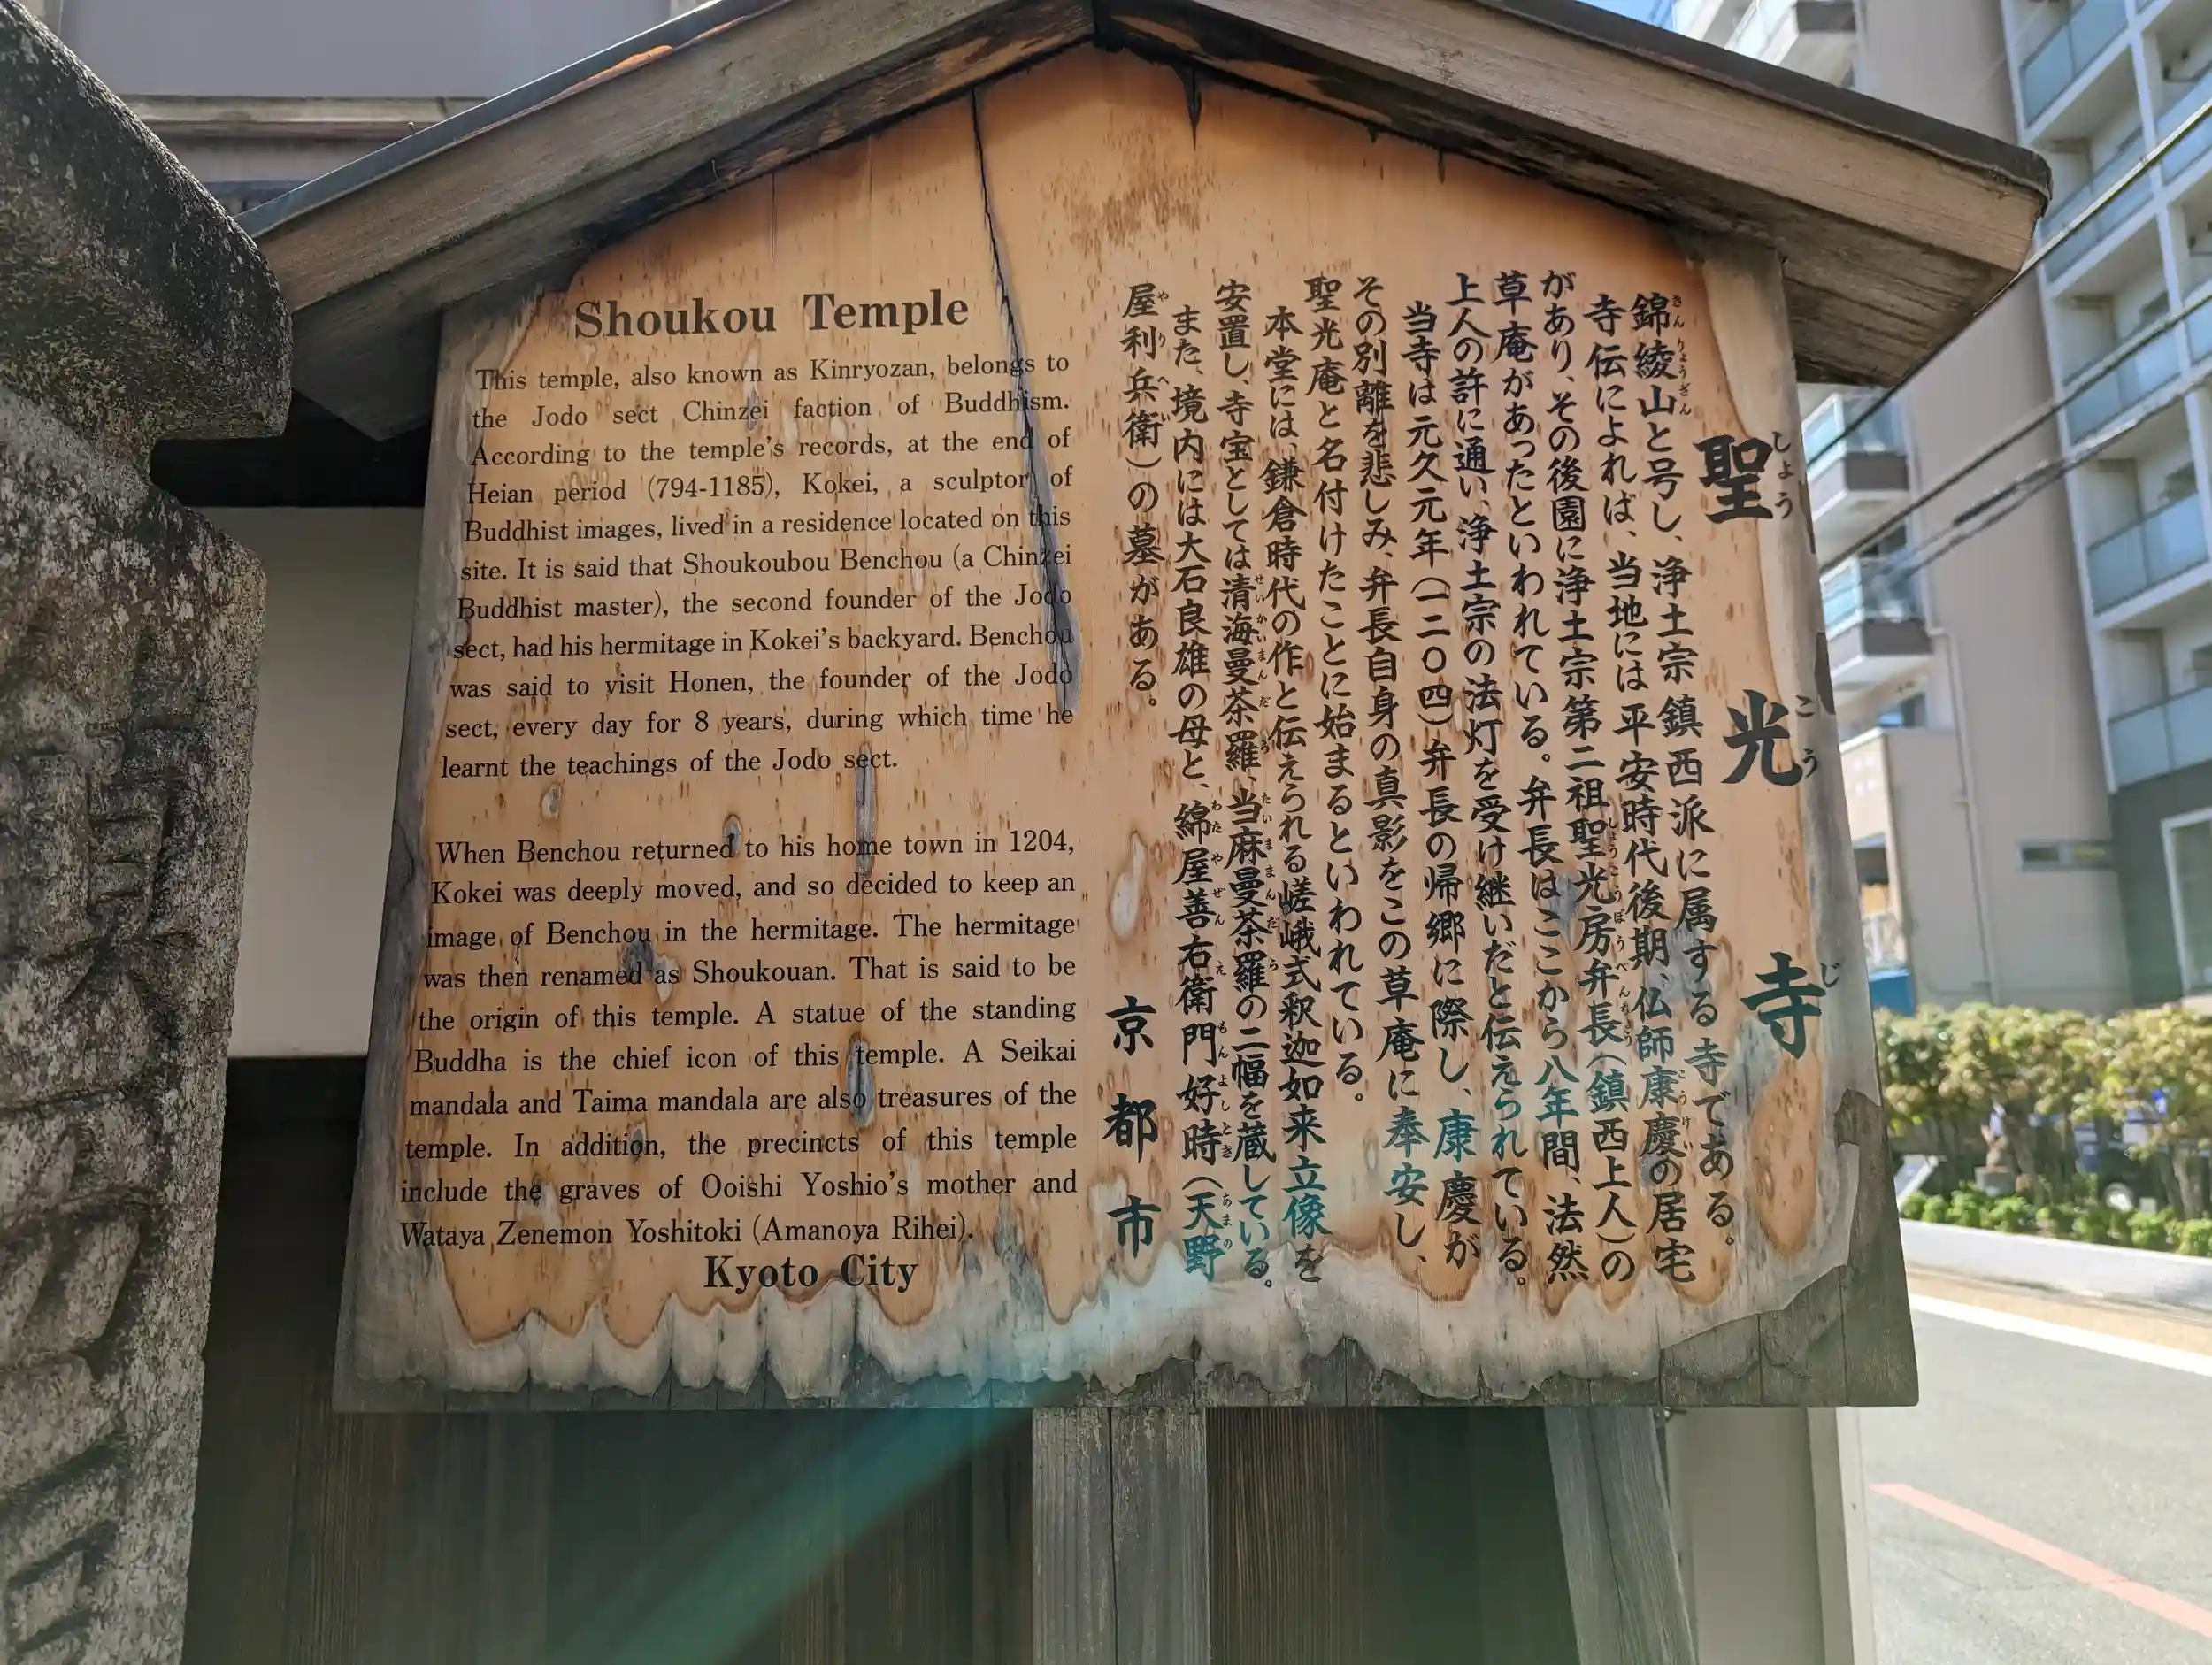 Shoukou Temple
This temple, also known as Kinryozan, belongs to
the Jodo sect Chinzei faction of Buddhism.
According to the temple's records, at the end of
Heian period (794-1185), Kokei, a sculptor of
Buddhist images, lived in a residence located on this
site. It is said that Shoukoubou Benchou (a Chinzei
Buddhist master), the second founder of the Jodo
sect, had his hermitage in Kokei's backyard. Benchou
was said to visit Honen, the founder of the Jodo
sect, every day for 8 years, during which time he
learnt the teachings of the Jodo sect.
When Benchou returned to his home town in 1204,
Kokei was deeply moved, and so decided to keep an
image of Benchou in the hermitage. The hermitage
was then renamed as Shoukouan. That is said to be
the origin of this temple. A statue of the standing
Buddha is the chief icon of this temple. A Seikai
mandala and Taima mandala are also treasures of the
temple. In addition, the precincts of this temple
include the graves of Ooishi Yoshio's mother and
Wataya Zenemon Yoshitoki (Amanoya Rihei).
Kyoto City
聖光寺
錦綾山と号し、浄土宗鎮西派に属する寺である。
寺伝によれば、当地には平安時代後期、仏師康慶の居宅
があり、その後園に浄土宗第二祖聖光房弁長（鎮西上人）の
草庵があったといわれている。弁長はここから八年間、法然
上人の許に通い、浄土宗の法灯を受け継いだと伝えられている。
当寺は元久元年（一二〇四）弁長の帰郷に際し、康慶が
その別離を悲しみ、弁長自身の真影をこの草庵に奉安し、
聖光庵と名付けたことに始まるといわれている。
本堂には、鎌倉時代の作と伝えられる嵯峨式釈迦如来立像を
安置し、寺宝としては清海曼茶羅、当麻曼茶羅の二幅を蔵している。
また、境内には大石良雄の母と、綿屋善右衛門好時（天野
屋利兵衛）の墓がある。
京都市